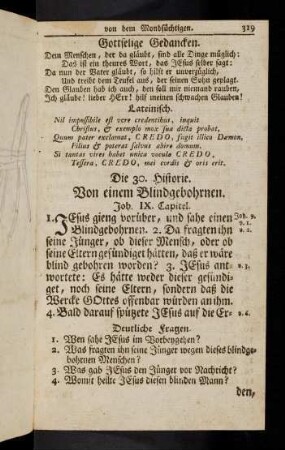 von dem Mondsüchtigen. 329
Gottselige Gedancken.
Dem Menschen, der da gläubt, sind alle Dinge müglich:
Das ist ein theures Wort, das JEsus selber sagt:
Da nun der Vater gläubt, so hilft er unverzüglich,
Und treibt dem Teufel aus, der seinen Sohn geplagt.
Den Glauben hab ich auch, den soll mir niemand rauben,
Jch gläube! lieber HErr! hilf meinen schwachen Glauben!
Lateinisch.
Nil impossibile est vere credentibus, inquit
Christus, & exemplo mox sua dicta probat,
Quum pater exclamat, CREDO, fugit illico Dæmon,
Filius & poterat salvus abire domum.
Si tantas vires habet unica vocula CREDO,
Tessera, CREDO, mei cordis & oris erit.
Die 30. Historie.
Von einem Blindgebohrnen.
Joh. IX. Capitel.
1. JEsus gieng vorüber, und sahe einen Joh. 9.
Blindgebohrnen. 2. Da fragten ihn v. 1. v. 2.
seine Jünger, ob dieser Mensch, oder ob
seine Eltern gesündiget hätten, daß er wäre
blind gebohren worden? 3. JEsus ant- v. 3.
wortete: Es hätte weder dieser gesündi-
get, noch seine Eltern, sondern daß die
Wercke GOttes offenbar würden an ihm.
4. Bald darauf spützete JEsus auf die Er- v. 6.
Deutliche Fragen.
1. Wen sahe JEsus im Vorbeygehen?
2. Was fragten ihn seine Jünger wegen dieses blindge-
bohrnen Menschen?
3. Was gab JEsus den Jünger vor Nachricht?
4. Womit heilte JEsus diesen blinden Mann?
den,